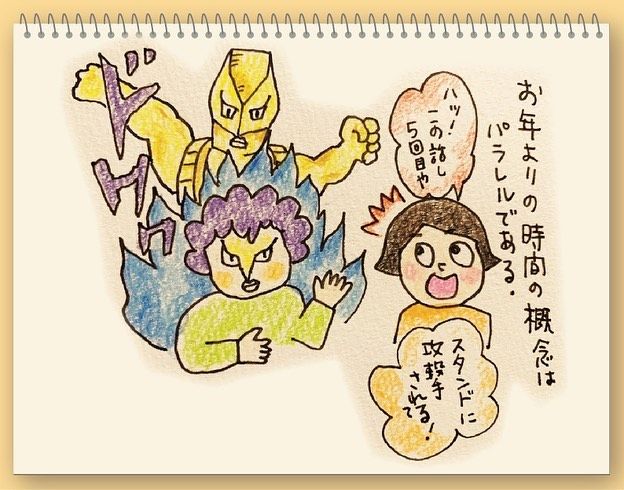 お年よりの時間の概念は
パラレルである.
ハッ!
この話し
5回目や
スタンドに
攻撃
されてる!
ドドド